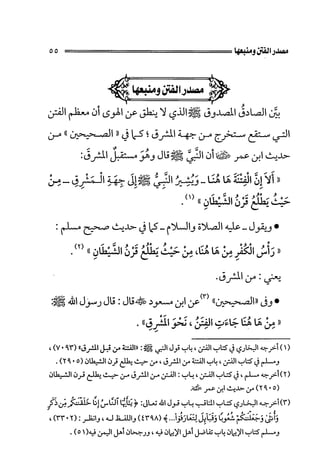 مصدر الفتن ومنبعها
٥٥
مصدر الفتن ومنبعها
بيَّن الصادقُ المصدوق ﷺ الذي لا ينطق عن الهوى أن معظم الفتن
التي ستقع ستخرج من جهة المشرق ؛ كما في « الصحيحين » من
حديث ابن عمر أن النَّبيَّ ﷺ قال وهُوَ مستقبلٌ المشرقَ:
« أَلَا إِنَّ الْفِتْنَةَ هَا هُنَا ـ وَيُشِيرُ النَّبِيُّ ﷺ إِلَى جِهَةِ الْـمَشْرِقِ ـ مِنْ
حَيْثُ يَطْلُعُ قَرْنُ الشَّيْطَانِ » (١).
• ويقول ـ عليه الصلاة والسلام ـ كما في حديث صحيح مسلم :
« رَأْسُ الْكُفْرِ مِنْ هَا هُنَا، مِنْ حَيْثُ يَطْلُعُ قَرْنُ الشَّيْطَانِ » (٢).
يعني : من المشرق.
• وفى «الصحيحين» (٣) عن ابن مسعود قال : قال رسول الله ﷺ:
« مِنْ هَا هُنَا جَاءَتِ الفِتَنُ ، نَحْوَ الْمَشْرِقِ» .
(١) أخرجه البخاري في كتاب الفتن ، باب قول النبي ﷺ : «الفتنة من قبل المشرق» (٧٠٩٣) ،
ومسلم في كتاب الفتن ، باب الفتنة من المشرق ، من حيث يطلع قرن الشيطان (٢٩٠٥) .
(٢) أخرجه مسلم ، في كتاب الفتن ، باب : الفتن من المشرق من حيث يطلع قرن الشيطان
(٢٩٠٥) من حديث ابن عمر
(٣) أخرجه البخاري كتاب المناقب باب قول الله تعالى: ﴿يَٰٓأَيُّهَا ٱلنَّاسُ إِنَّا خَلَقْنَٰكُم مِّن ذَكَرٍ
وَأُنثَىٰ وَجَعَلْنَٰكُمْ شُعُوبًا وَقَبَآئِلَ لِتَعَارَفُوٓا۟...﴾ (٤٣٩٨) واللفظ له ، وانظر : (٣٣٠٢) ،
ومسلم كتاب الإيمان باب تفاضل أهل الإيمان فيه ، ورجحان أهل اليمن فيه (٥١) .